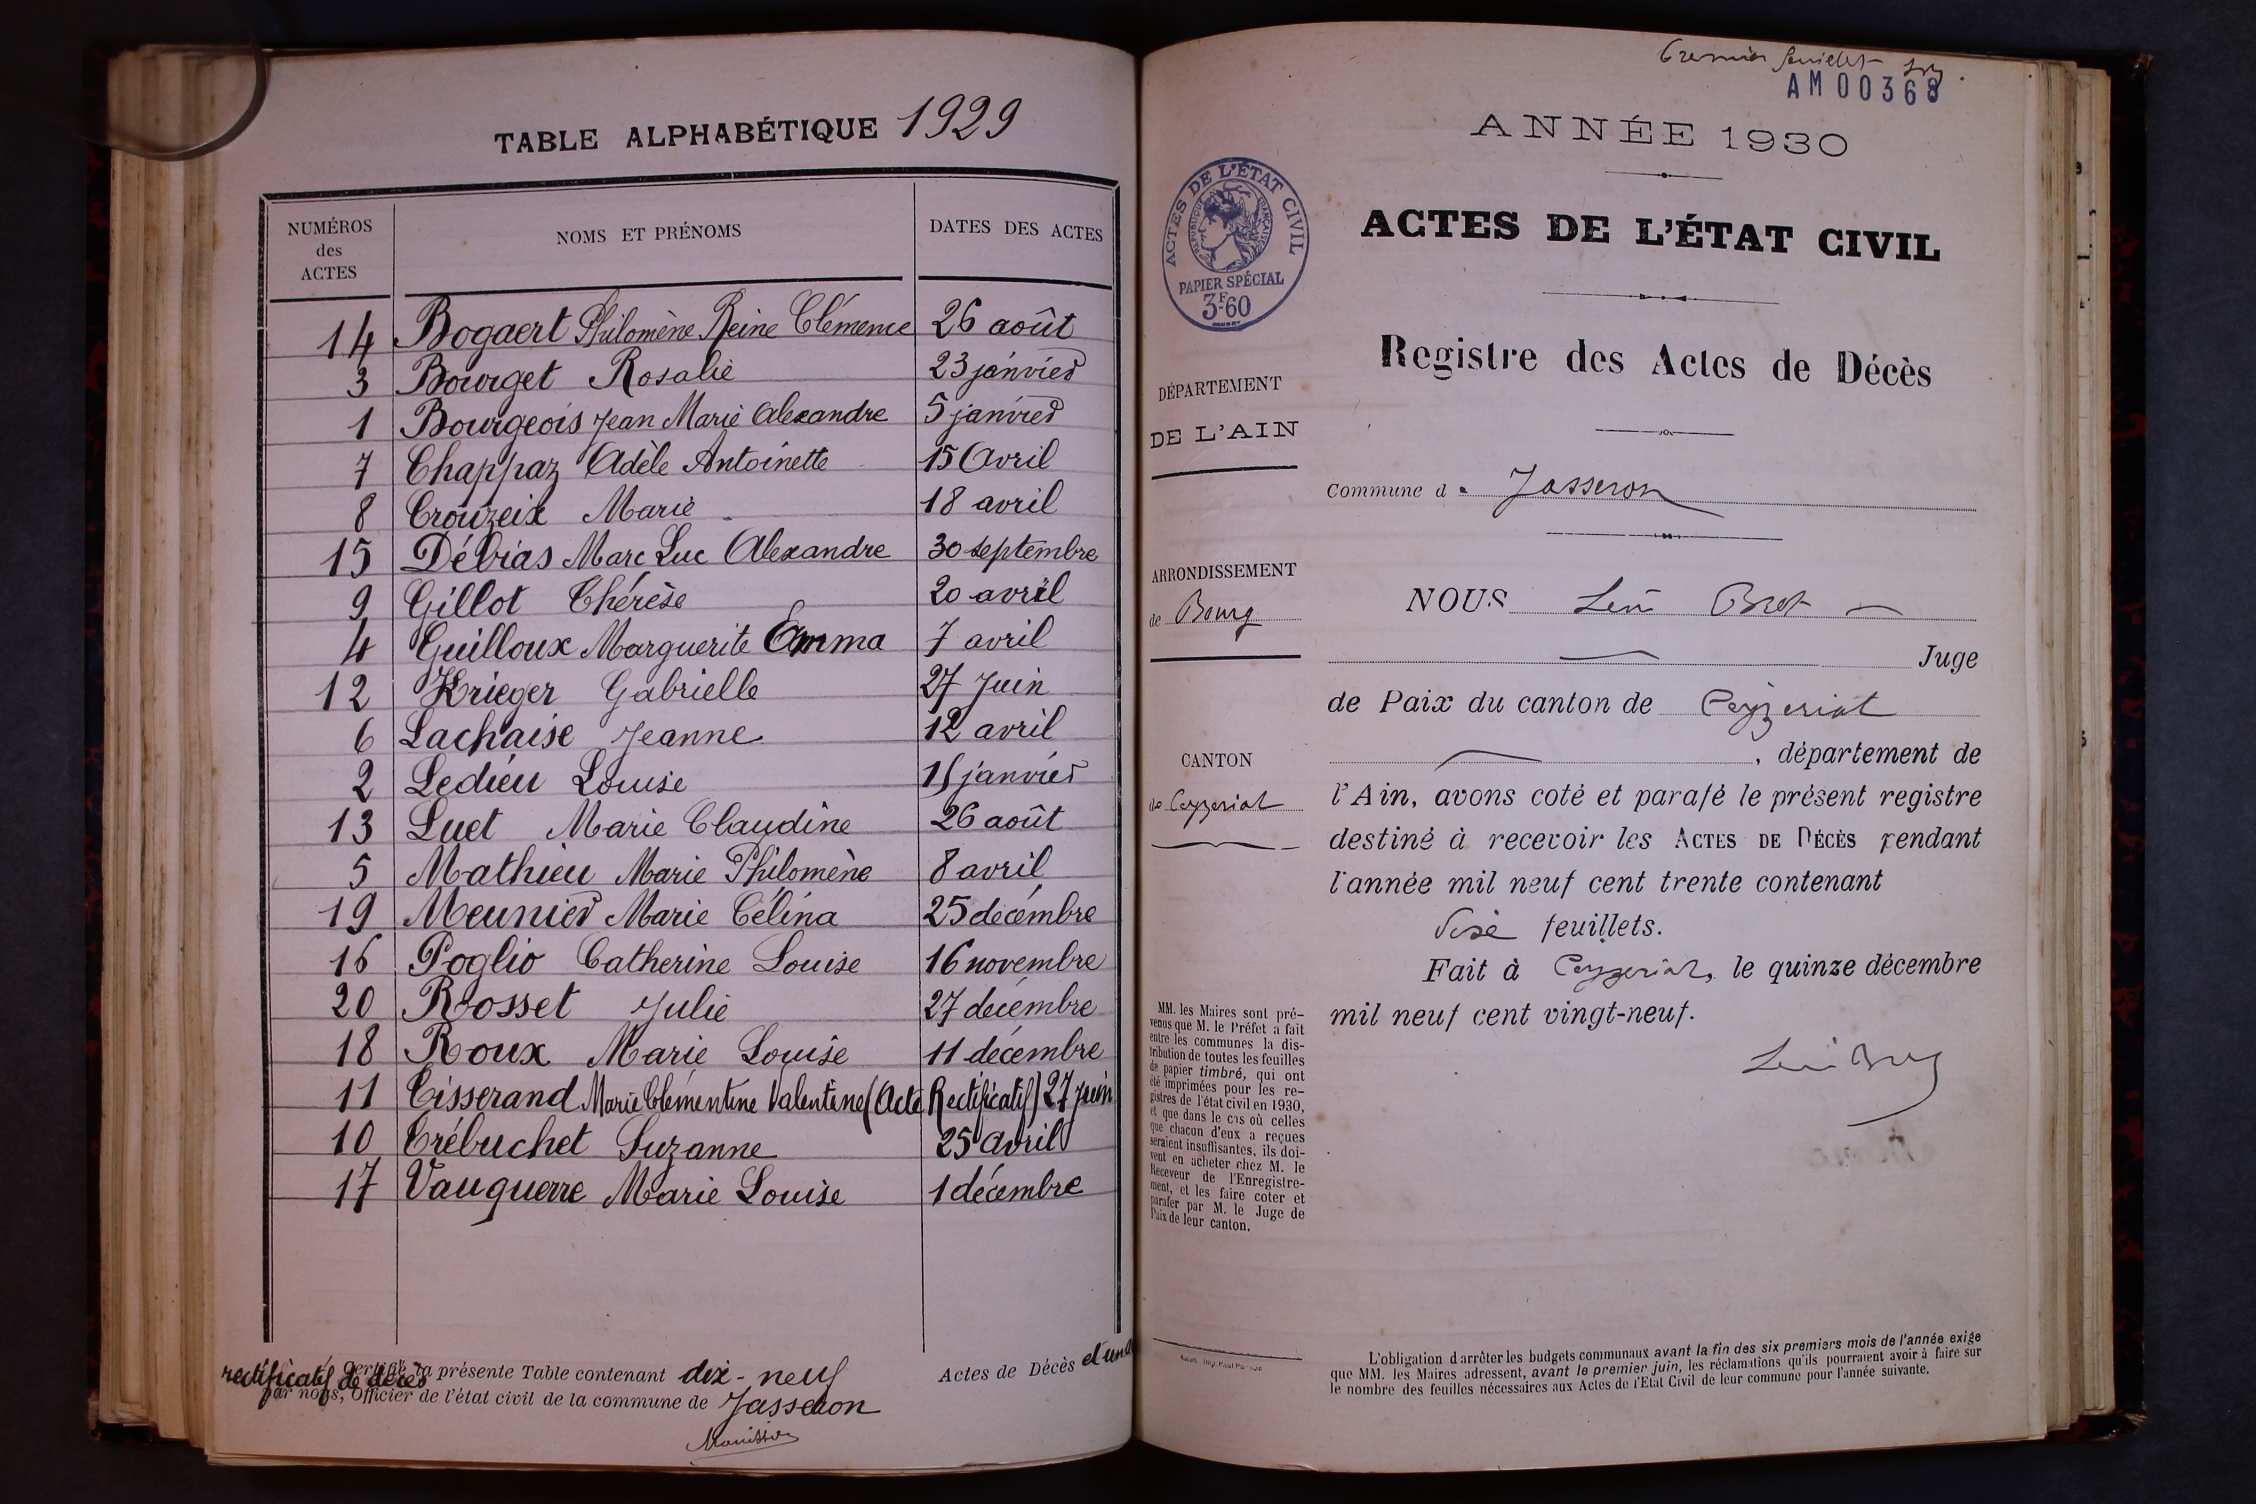 TABLE ALPHABÉTIQUE 1929
NUMÉROS des ACTES NOMS ET PRÉNOMS DATES DES ACTES
14 Bogaert Philomène Reine Clémence 26 août
3 Bourget Rosalie 23 janvier
1 Bourgeois Jean Marie Alexandre 5 janvier
7 Chappaz Adèle Antoinette 15 Avril
8 Crouzeix Marie 18 avril
15 Débias Marc Luc Alexandre 30 septembre
9 Gillot Thérèse 20 avril
4 Guilloux Marguerite Emma 7 avril
12 Krieger Gabrielle 27 Juin
6 Lachaise Jeanne 12 avril
2 Ledieu Louise 15 janvier
13 Luet Marie Claudine 26 août
5 Mathieu Marie Philomène 8 avril
19 Meunier Marie Célina 25 décembre
16 Poglio Catherine Louise 16 novembre
20 Rosset Julie 27 décembre
18 Roux Marie Louise 11 décembre
11 Tisserand Marie Clémentine Valentine (Acte Rectificatif) 27 juin
10 Trébuchet Suzanne 25 avril
17 Vauguerre Marie Louise 1 décembre
Certifié la présente Table contenant dix-neuf Actes de Décès et un
rectificatif de décès
par nous, Officier de l'état civil de la commune de Jasseron
Premier feuillet
AM00368
ANNÉE 1930
ACTES DE L'ÉTAT CIVIL
RÉPUBLIQUE FRANÇAISE
PAPIER SPÉCIAL
3F60
ACTES DE L'ÉTAT CIVIL
Registre des Actes de Décès
DÉPARTEMENT
DE L'AIN
Commune de Jasseron
ARRONDISSEMENT
de Bourg
NOUS Léon Bret
Juge
de Paix du canton de Ceyzeriat
, département de
CANTON
de Ceyzeriat
l'Ain, avons coté et parafé le présent registre
destiné à recevoir les ACTES DE DÉCÈS pendant
l'année mil neuf cent trente contenant
Seize feuillets.
Fait à Ceyzeriat, le quinze décembre
mil neuf cent vingt-neuf.
MM. les Maires sont pré-
venus que M. le Préfet a fait
entre les communes la dis-
tribution de toutes les feuilles
de papier timbré, qui ont
été imprimées pour les re-
gistres de l'état civil en 1930,
et que dans le cas où celles
que chacun d'eux a reçues
seraient insuffisantes, ils doi-
vent en acheter chez M. le
Receveur de l'Enregistre-
ment, et les faire coter et
parafer par M. le Juge de
Paix de leur canton.
L'obligation d'arrêter les budgets communaux avant la fin des six premiers mois de l'année exige
que MM. les Maires adressent, avant le premier juin, les réclamations qu'ils pourraient avoir à faire sur
le nombre des feuilles nécessaires aux Actes de l'État Civil de leur commune pour l'année suivante.